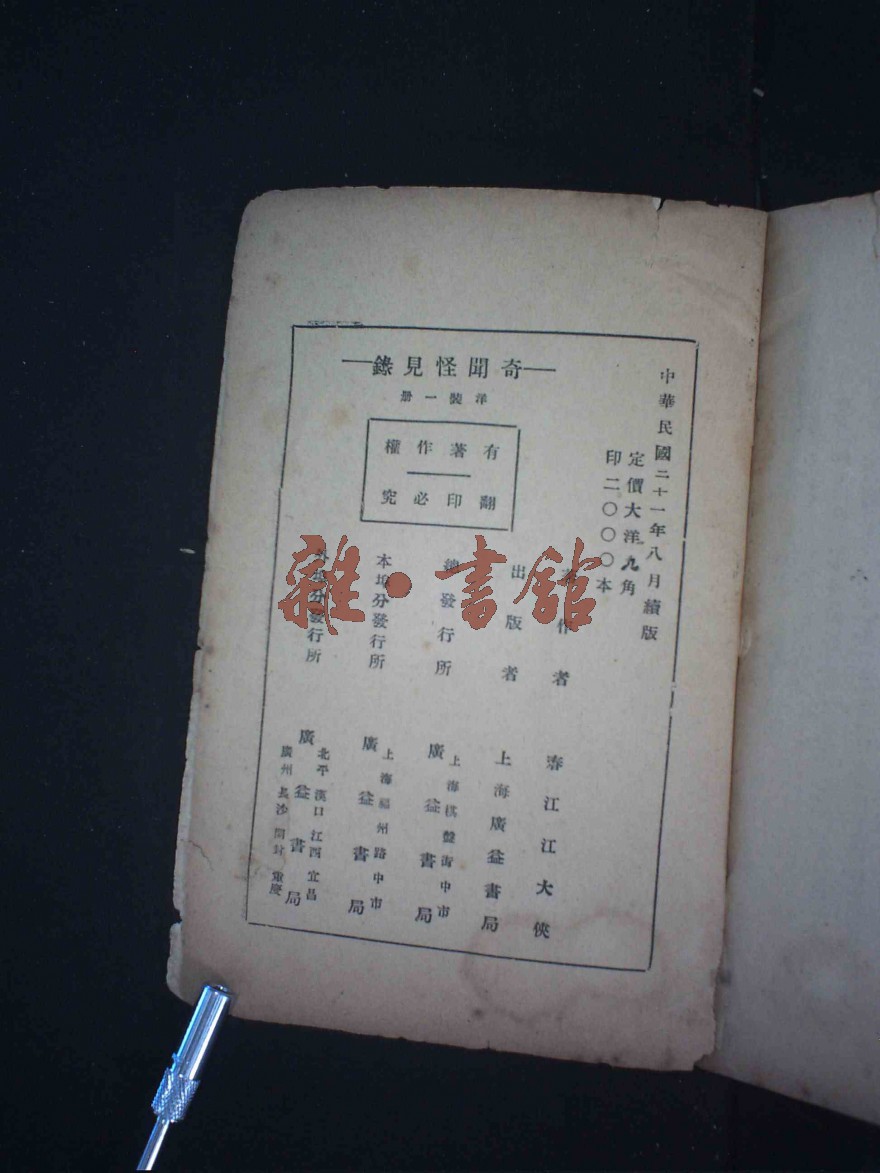 中華民國二十一年八月續版
定價大洋九角
印二〇〇〇本
奇聞怪見錄
洋裝一册
有著作權
翻印必究
作者
春江江大俠
出版者
上海廣益書局
發行所
上海棋盤街中市
廣益書局
本埠分發行所
上海福州路中市
廣益書局
外埠分發行所
北平漢口江西宜昌
廣益書局
廣州長沙開封重慶
雜·書館